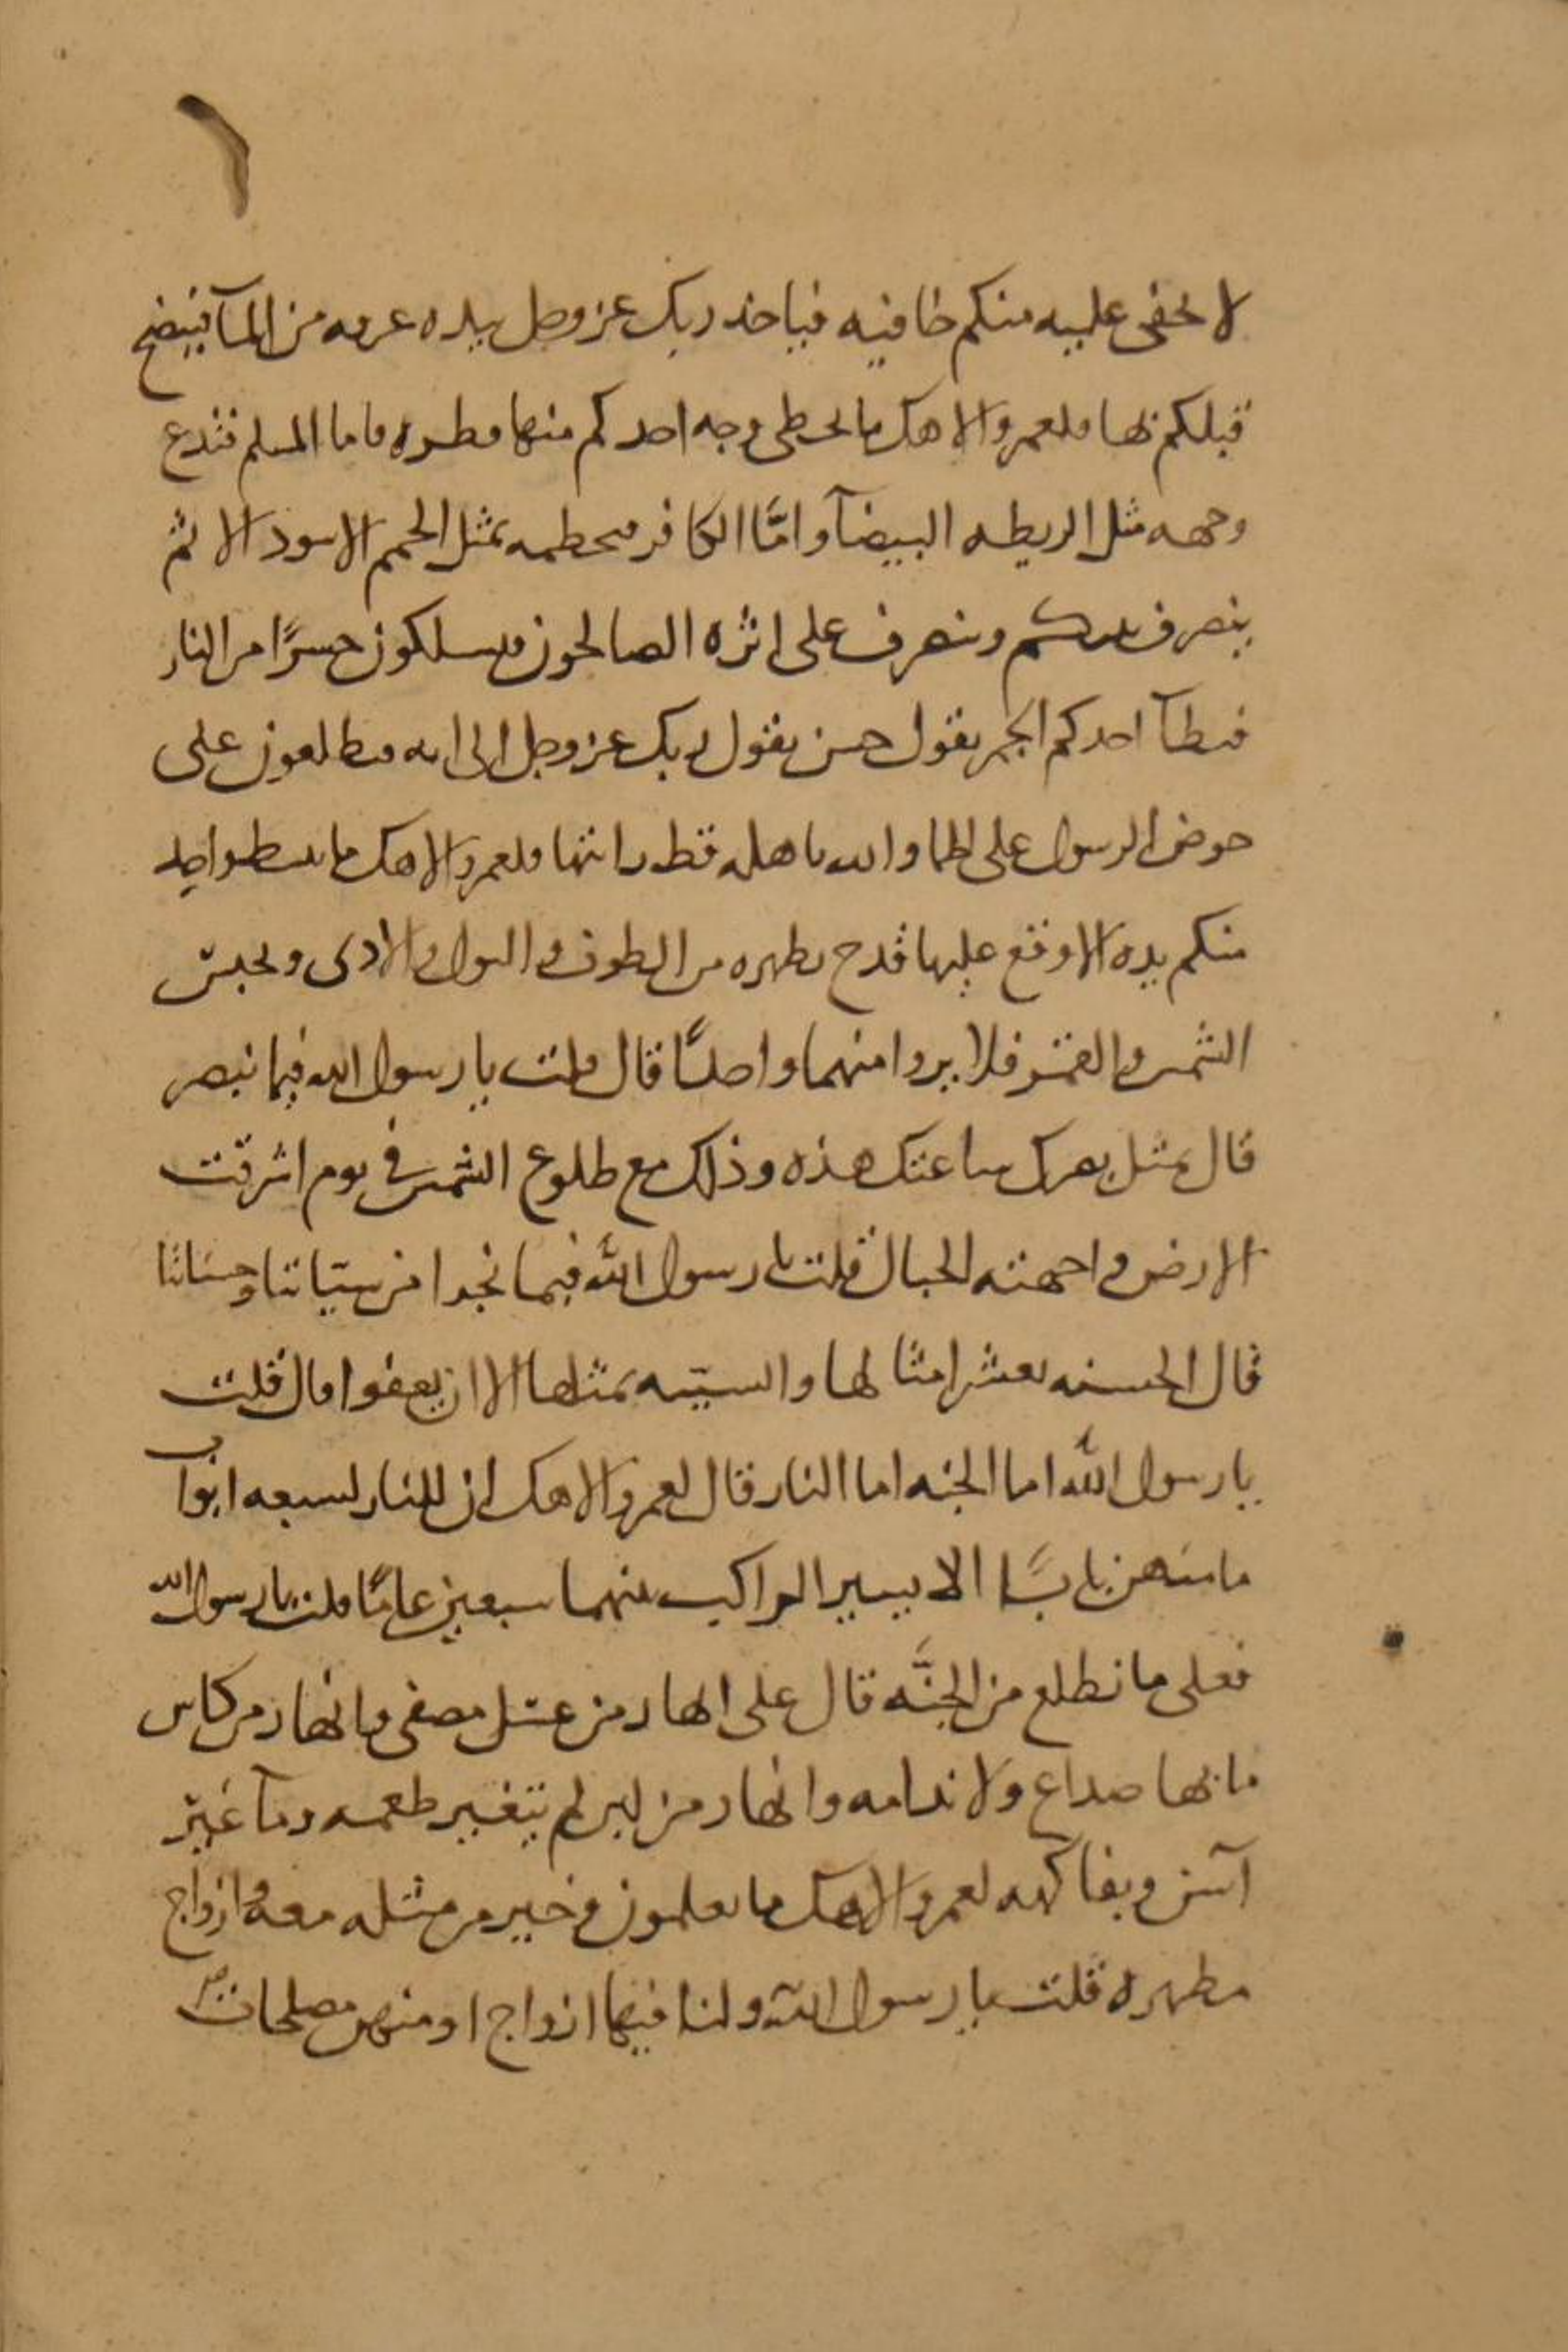 ٦
لا تخفى عليه منكم خافيه فياخذ ربك عز وجل بيده غرفه من المآ فينضح
قبلكم بها فلعمر الاهك ما تخطى وجه احدكم منها قطره فاما المسلم فتدع
وجهه مثل الريطه البيضآ وامَّا الكافر فتخطمه بمثل الحمم الاسود الا ثم
ينصرف نبيكم وينصرف على اثره الصالحون فيسلكون جسرًا من النار
فيطآ احدكم الجمر يقول حس يقول ربك عز وجل الى انه فتطلعون على
حوض الرسول على اظما والله ناهله قط رايتها فلعمر الاهك ما يبسط واحد
منكم يده الا وقع عليها قدح يطهره من الطوف والبول والاذى وتحبس
الشمس والقمر فلا يروا منهما واحدًا قال قلت يا رسول الله فيما نبصر
قال بمثل بصرك ساعتك هذه وذلك مع طلوع الشمس في يوم اشرقت
الارض واجهته الجبال قلت يا رسول الله فيما نجدا من سياتنا وحسناتنا
قال الحسنه بعشر امثالها والسيئه بمثلها الا ان يعفوا قال قلت
يا رسول الله اما الجنه اما النار قال لعمر الاهك ان للنار لسبعه ابواب
ما منهن بابًا الا يسير الراكب بينهما سبعين عامًا قلت يا رسول الله
فعلى ما نطلع من الجنَّه قال على انهار من عسل مصفى وانهار من كاس
ما بها صداع ولا ندامه وانهار من لبن لم يتغير طعمه ومآ غير
آسن وبفاكهه لعمر الاهك ما تعلمون وخير من مثله معه وازواج
مطهره قلت يا رسول الله ولنا فيها ازواج او منهن مصلحات